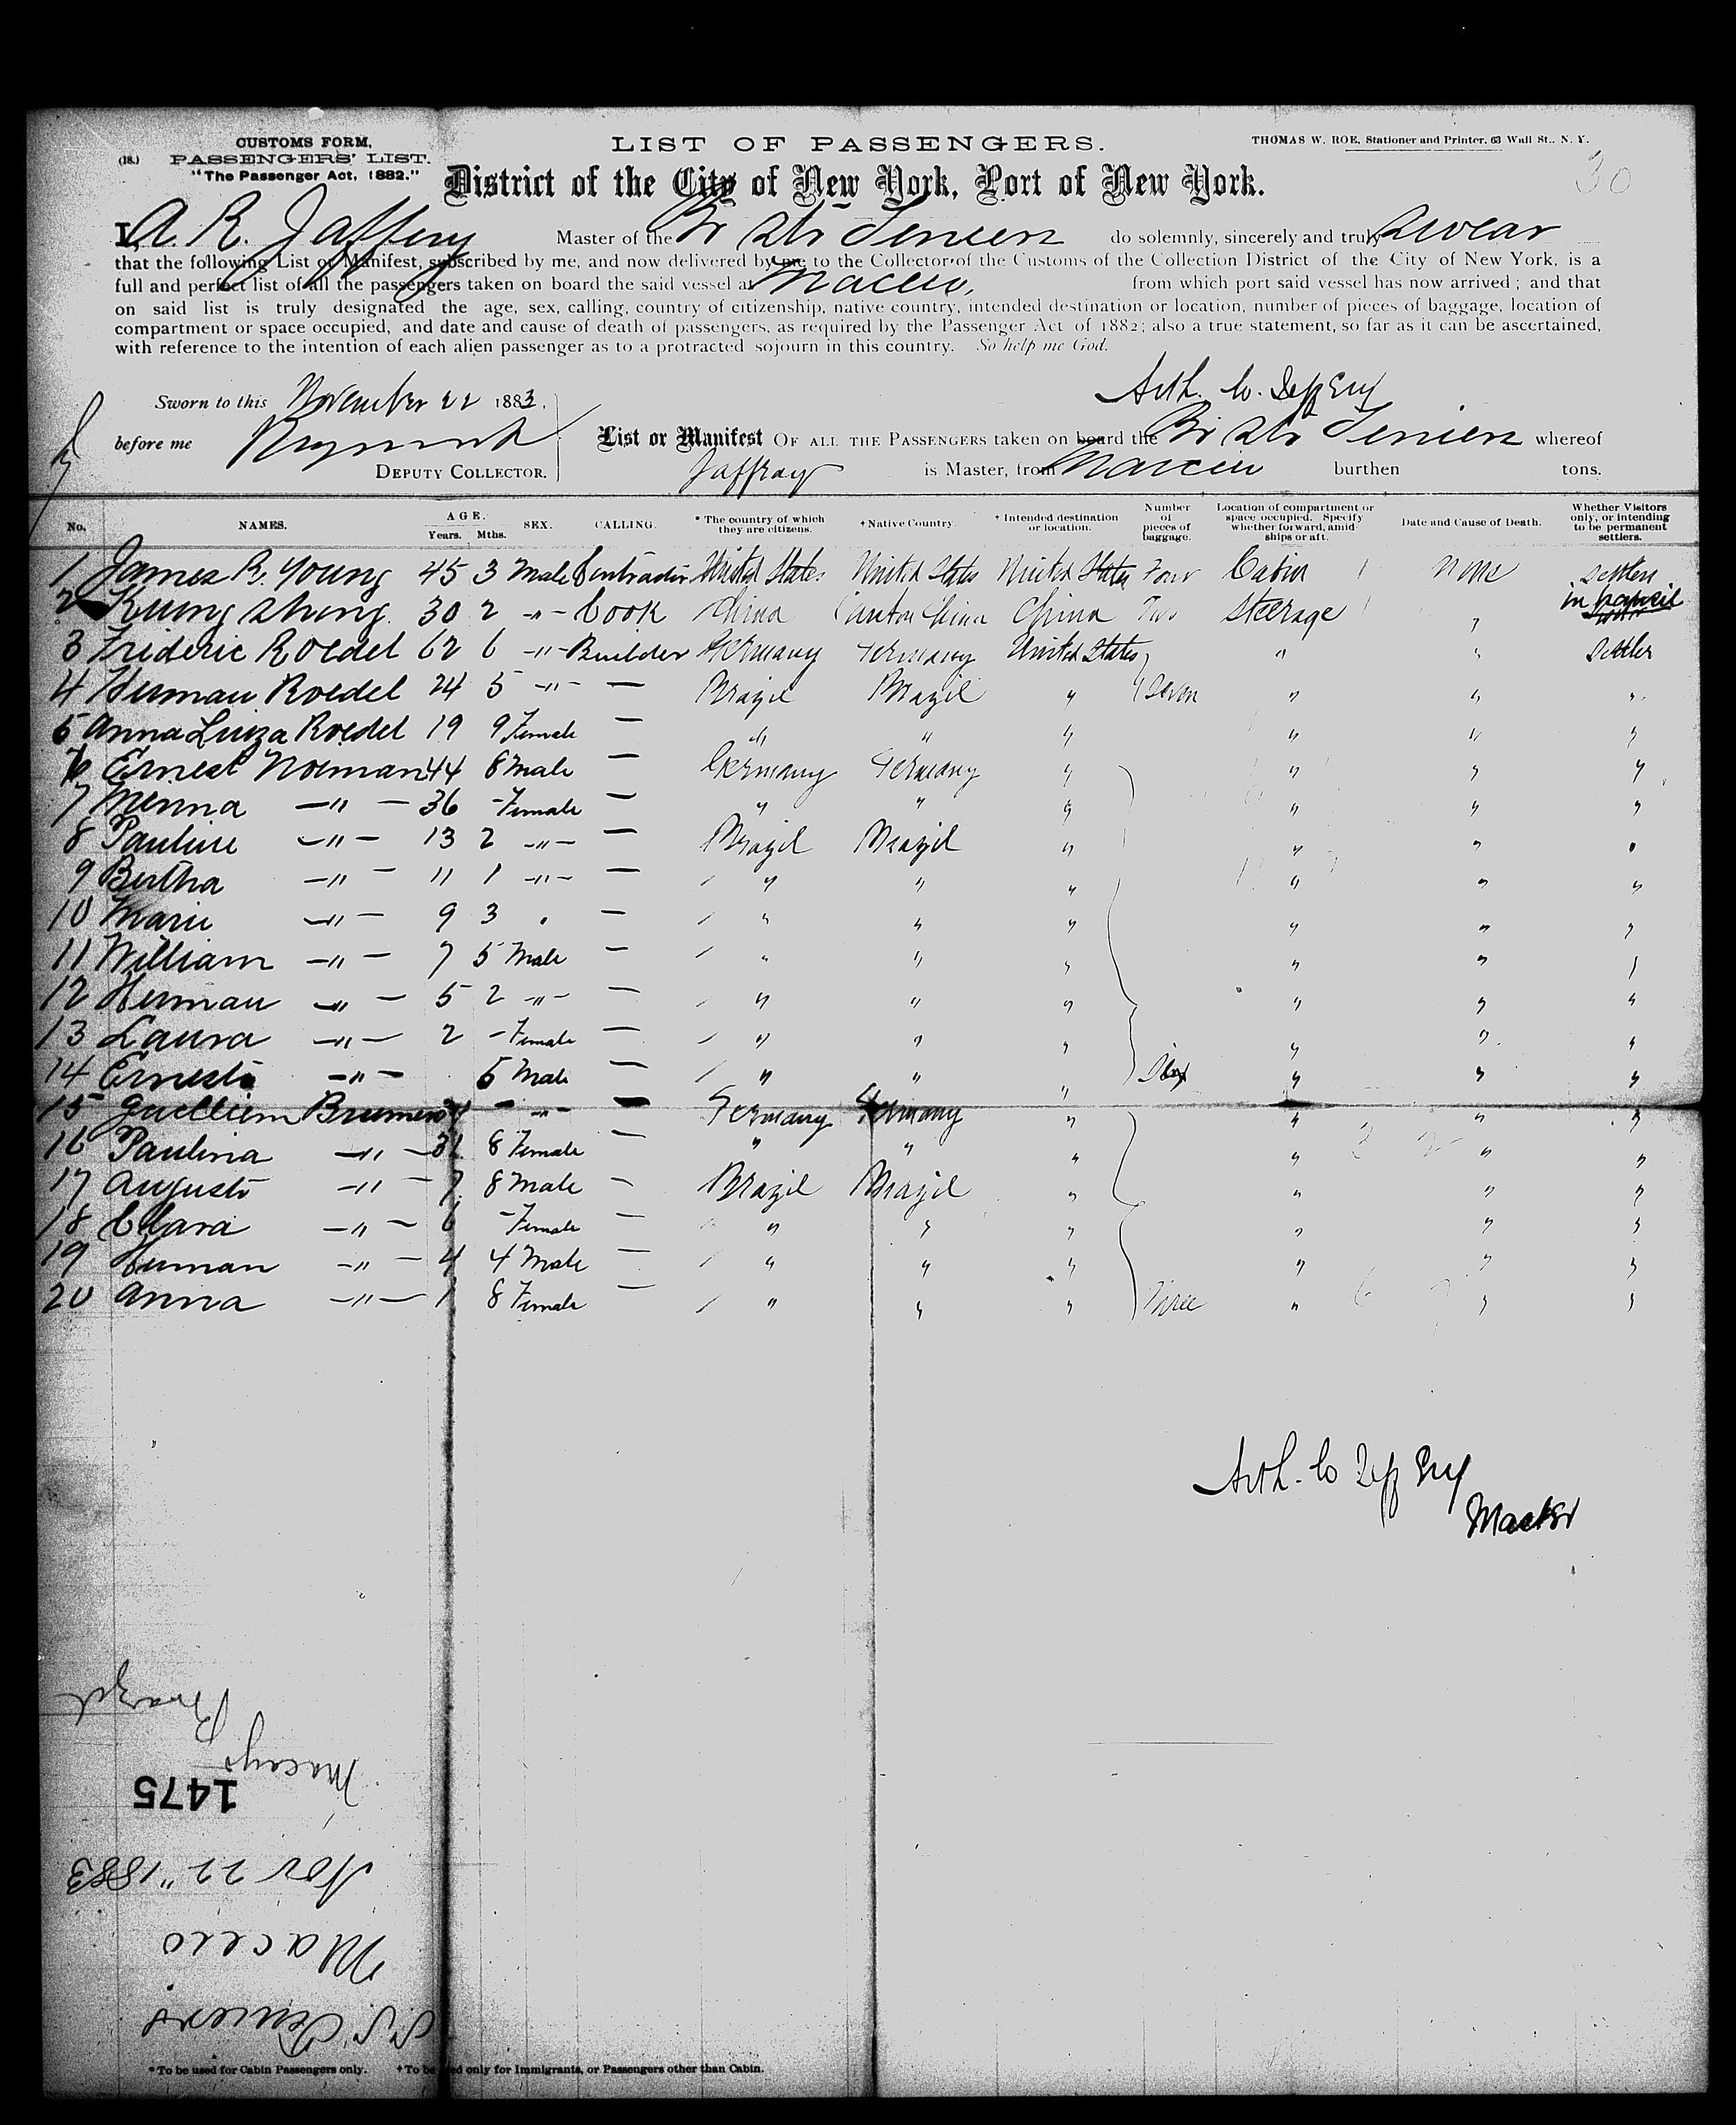 CUSTOMS FORM,
(18.) PASSENGERS' LIST.
"The Passenger Act, 1882."
LIST OF PASSENGERS.
THOMAS W. ROE, Stationer and Printer, 63 Wall St., N. Y.
30
District of the City of New York, Port of New York.
I A. R. Jaffery Master of the Br Str do solemnly, sincerely and truly swear
that the following List or Manifest, subscribed by me, and now delivered by me to the Collector of the Customs of the Collection District of the City of New York, is a
full and perfect list of all the passengers taken on board the said vessel at Maceio, from which port said vessel has now arrived; and that
on said list is truly designated the age, sex, calling, country of citizenship, native country, intended destination or location, number of pieces of baggage, location of
compartment or space occupied, and date and cause of death of passengers, as required by the Passenger Act of 1882; also a true statement, so far as it can be ascertained,
with reference to the intention of each alien passenger as to a protracted sojourn in this country. So help me God.
Sworn to this November 22 1883.
before me
DEPUTY COLLECTOR.
Arth. Co. Jeffery
List or Manifest OF ALL THE PASSENGERS taken on board the Br Str whereof
Jaffray is Master, from burthen tons.
No. NAMES. AGE. Years. Mths. SEX. CALLING. * The country of which they are citizens. † Native Country. † Intended destination or location. Number of pieces of baggage. Location of compartment or space occupied. Specify whether forward, amid ships or aft. Date and Cause of Death. Whether Visitors only, or intending to be permanent settlers.
1 James R. Young 45 3 Male Contractor United States United States United States Four Cabin None Settler
2 Kung Shung 30 2 -"- Cook China Canton China China Two Steerage " in transit
3 Frideric Roedel 62 6 -"- Builder Germany Germany United States " " Settler
4 Herman Roedel 24 5 -"- — Brazil Brazil " Seven " " "
5 Anna Luiza Roedel 19 9 Female — " " " " " "
6 Ernest Noiman 44 8 Male Germany Germany " " " "
7 Menna -"- 36 - Female — " " " " " "
8 Pauline -"- 13 2 -"- — Brazil Brazil " " " "
9 Bertha -"- 11 1 -"- — " " " " " "
10 Marie -"- 9 3 " — " " " " " "
11 William -"- 7 5 Male — " " " " " "
12 Herman -"- 5 2 -"- — " " " " " "
13 Laura -"- 2 - Female — " " " " " "
14 Ernesto -"- 5 Male — " " " Six " " "
15 - -"- — Germany Germany " " " "
16 Paulina -"- 31 8 Female — " " " " " "
17 Augusto -"- 7 8 Male — Brazil Brazil " " " "
18 Clara -"- 6 - Female — " " " " " "
19 Herman -"- 4 4 Male — " " " " " "
20 Anna -"- 1 8 Female — " " " Three " " "
Arth. Co Jeffery
Master
Brazil
1475
Nov 22" 1883
Maceio
S.S.
* To be used for Cabin Passengers only. † To be used only for Immigrants, or Passengers other than Cabin.